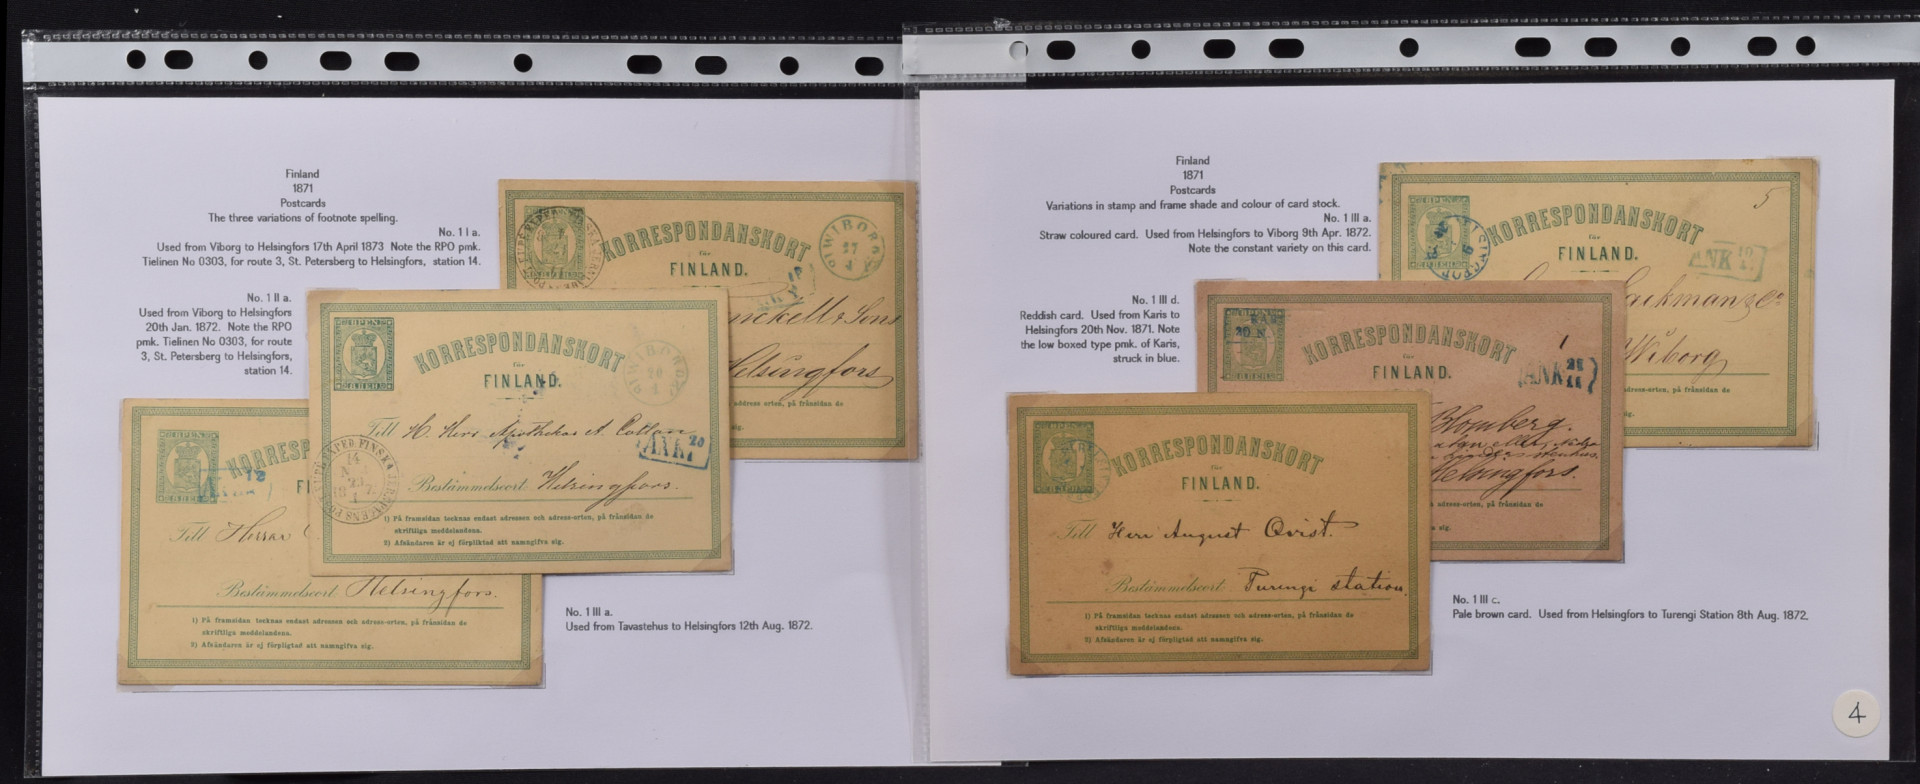 Finland
1871
Postcards
The three variations of footnote spelling.
No. 1 I a.
Used from Viborg to Helsingfors 17th April 1873 Note the RPO pmk.
Tielinen No 0303, for route 3, St. Petersberg to Helsingfors, station 14.
No. 1 II a.
Used from Viborg to Helsingfors
20th Jan. 1872. Note the RPO
pmk. Tielinen No 0303, for route
3, St. Petersberg to Helsingfors,
station 14.
KORRESPONDANSKORT
för
FINLAND.
WIBORG
27
4
Sons
Helsingfors
address orten, på frånsidan de
KORRESPONDANSKORT
för
FINLAND.
WIBORG
20
1
Till H. Herr Apothekar A. Collan
ANK 20
1
Bestämmelseort Helsingfors.
1) På framsidan tecknas endast adressen och adress-orten, på frånsidan de
skriftliga meddelandena.
2) Afsändaren är ej förpligtad att namngifva sig.
KORRESP
FI
ANK 12
Till Herrar
Bestämmelseort Helsingfors.
1) På framsidan tecknas endast adressen och adress-orten, på frånsidan de
skriftliga meddelandena.
2) Afsändaren är ej förpligtad att namngifva sig.
No. 1 III a.
Used from Tavastehus to Helsingfors 12th Aug. 1872.
Finland
1871
Postcards
Variations in stamp and frame shade and colour of card stock.
No. 1 III a.
Straw coloured card. Used from Helsingfors to Viborg 9th Apr. 1872.
Note the constant variety on this card.
No. 1 III d.
Reddish card. Used from Karis to
Helsingfors 20th Nov. 1871. Note
the low boxed type pmk. of Karis,
struck in blue.
5
KORRESPONDANSKORT
för
FINLAND.
ANK 10
Wiborg
adress-orten, på frånsidan de
sig.
KORRESPONDANSKORT
för
FINLAND.
1
ANK 21
11
Blomberg.
Helsingfors.
adress-orten, på frånsidan de
sig.
KORRESPONDANSKORT
för
FINLAND.
Till Herr August Qvist.
Bestämmelseort Turengi station.
1) På framsidan tecknas endast adressen och adress-orten, på frånsidan de
skriftliga meddelandena.
2) Afsändaren är ej förpligtad att namngifva sig.
No. 1 III c.
Pale brown card. Used from Helsingfors to Turengi Station 8th Aug. 1872.
4